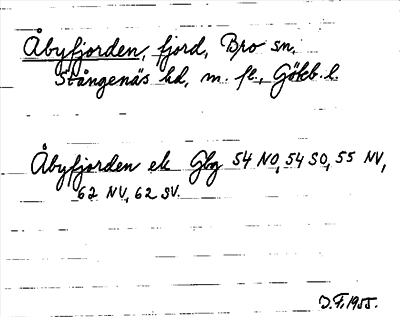 Åbyfjorden, fjord, Bro sn,
Stångenäs hd, m. fl., Göteb. l.
Åbyfjorden ek Gbg 54 NO, 54 SO, 55 NV,
62 NV, 62 SV.
J.F. 1955.